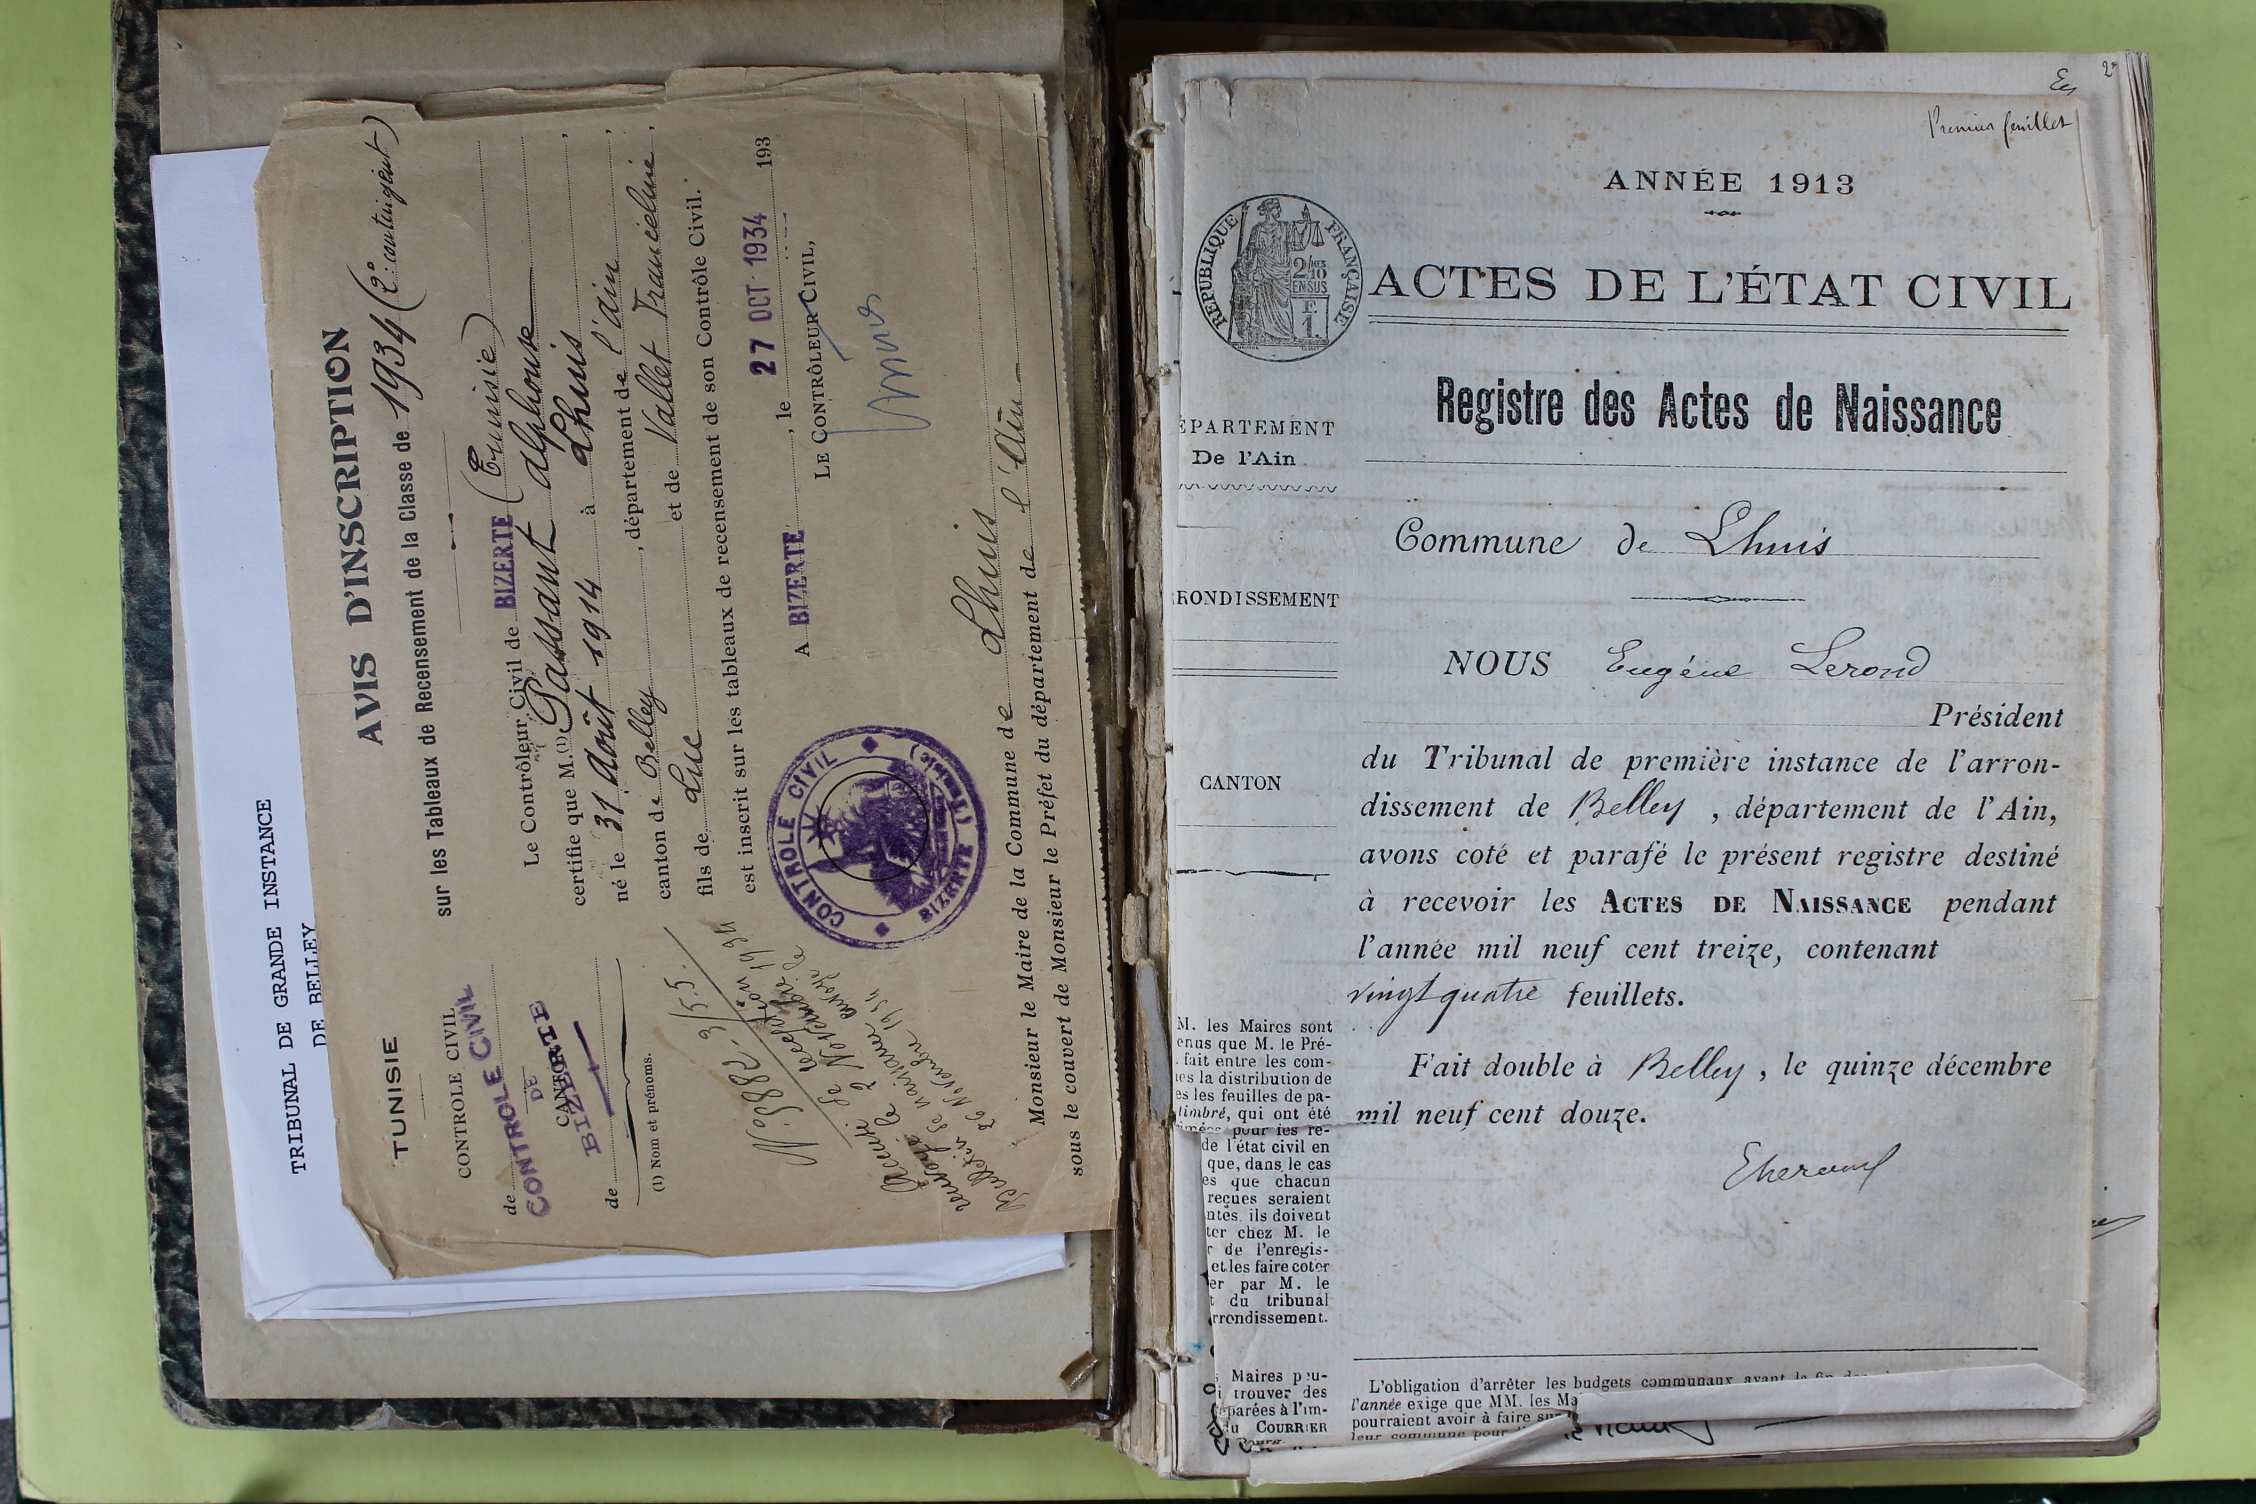 TRIBUNAL DE GRANDE INSTANCE
DE BELLEY
TUNISIE
CONTROLE CIVIL
de
CONTROLE CIVIL
DE
CANTON
BIZERTE
de
(1) Nom et prénoms.
AVIS D'INSCRIPTION
sur les Tableaux de Recensement de la Classe de 1934 (2e contingent)
Le Contrôleur Civil de BIZERTE (Tunisie)
certifie que M. (1) Passant Alphonse,
né le 31 Août 1914 à Lhuis,
canton de Belley, département de l'ain
fils de Luc et de Vallet Franceline,
est inscrit sur les tableaux de recensement de son Contrôle Civil.
A BIZERTE, le 27 OCT 1934 193
LE CONTRÔLEUR CIVIL,
CONTROLE CIVIL
BIZERTE (Tunisie)
N° 5882-3/5.5.
Accusé de reception
renvoyé le 2 Novembre 1934
Bulletin de naissance envoyé le
26 Novembre 1934
Monsieur le Maire de la Commune de Lhuis
sous le couvert de Monsieur le Préfet du département de l'Ain
2
Premier feuillet
ANNÉE 1913
RÉPUBLIQUE FRANÇAISE
2/10
EN SUS
F.
1
ACTES DE L'ÉTAT CIVIL
Registre des Actes de Naissance
ÉPARTEMENT
De l'Ain
RONDISSEMENT
CANTON
Commune de Lhuis
NOUS Eugéne Lerond
Président
du Tribunal de première instance de l'arron-
dissement de Belley, département de l'Ain,
avons coté et parafé le présent registre destiné
à recevoir les ACTES DE NAISSANCE pendant
l'année mil neuf cent treize, contenant
vingt quatre feuillets.
Fait double à Belley, le quinze décembre
mil neuf cent douze.
M. les Maires sont
enus que M. le Pré-
fait entre les com-
es la distribution de
es les feuilles de pa-
timbré, qui ont été
imées pour les re-
de l'état civil en
que, dans le cas
es que chacun
reçues seraient
ntes, ils doivent
ter chez M. le
r de l'enregis-
et les faire coter
er par M. le
t du tribunal
rrondissement.
Maires peu-
trouver des
éparées à l'im-
u COURRIER
L'obligation d'arrêter les budgets communaux avant la fin
l'année exige que MM. les Ma
pourraient avoir à faire sur
leur commune pour